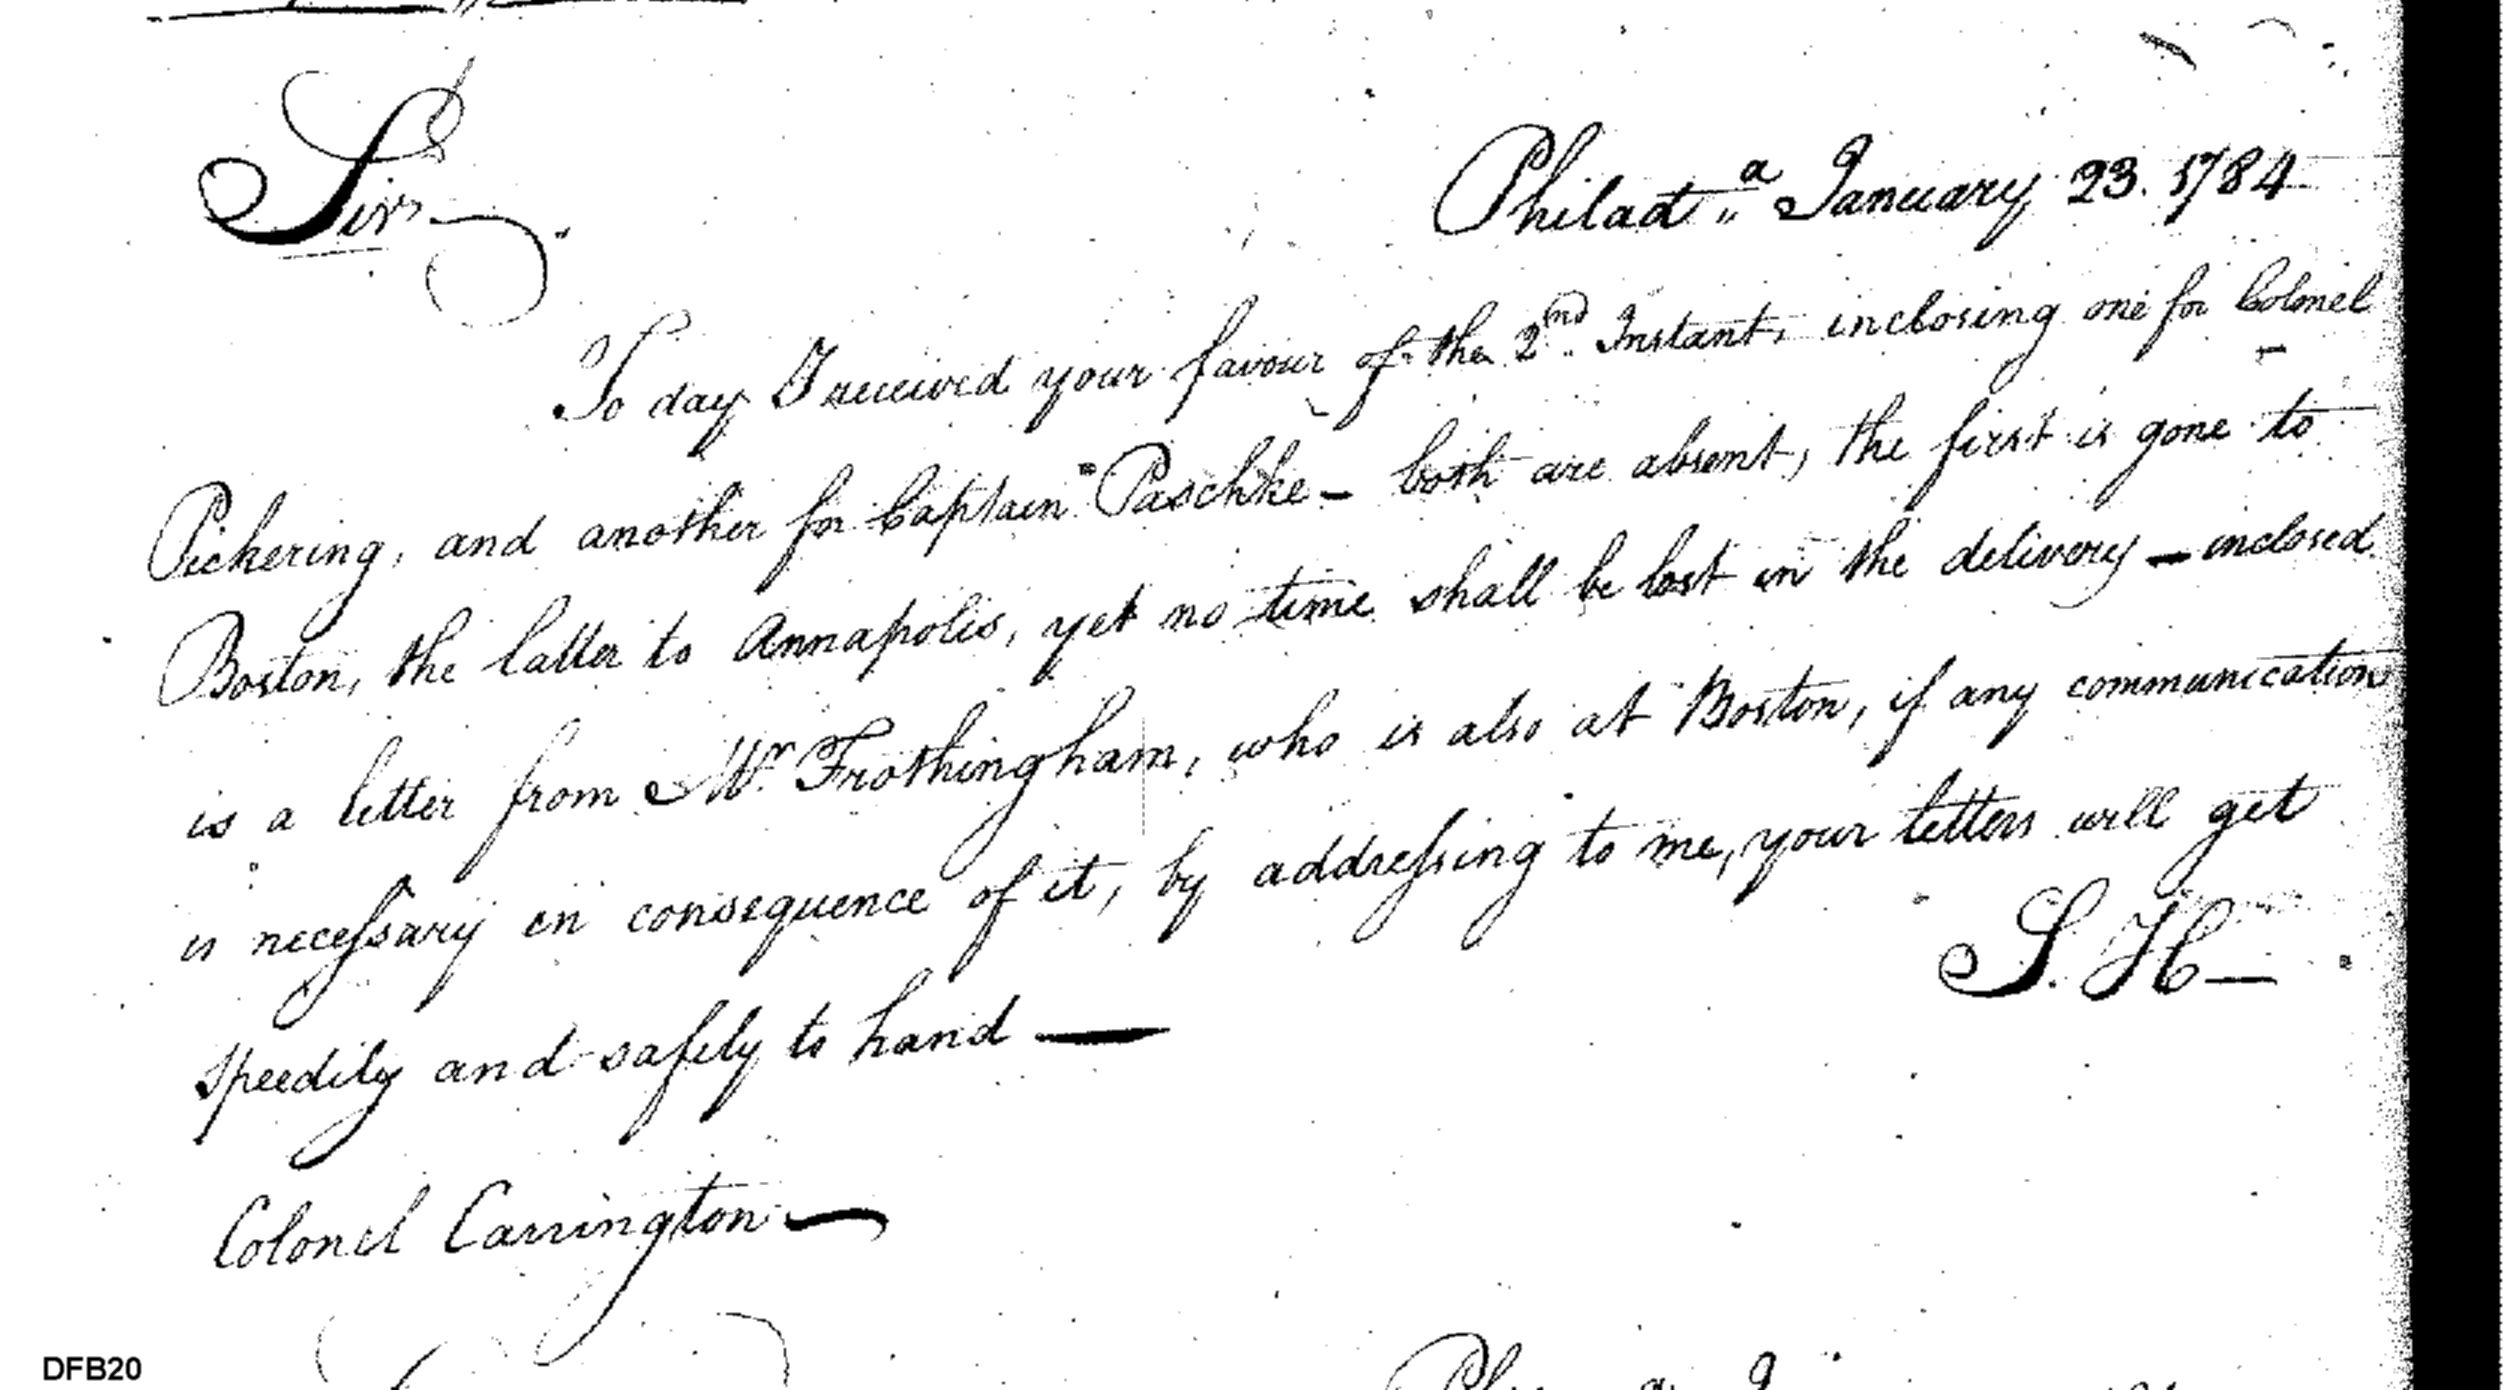 Sir
Philad.a January 23. 1784
To day I received your favour of the 2nd Instant, inclosing one for Colonel
Pickering, and another for Captain Paschke — both are absent, the first is gone to
Boston, the latter to Annapolis, yet no time shall be lost in the delivery — inclosed
is a letter from Mr. Frothingham, who is also at Boston, if any communication
is necessary in consequence of it, by addressing to me, your letters will get
speedily and safely to hand —
S. H —
Colonel Carrington —
DFB20